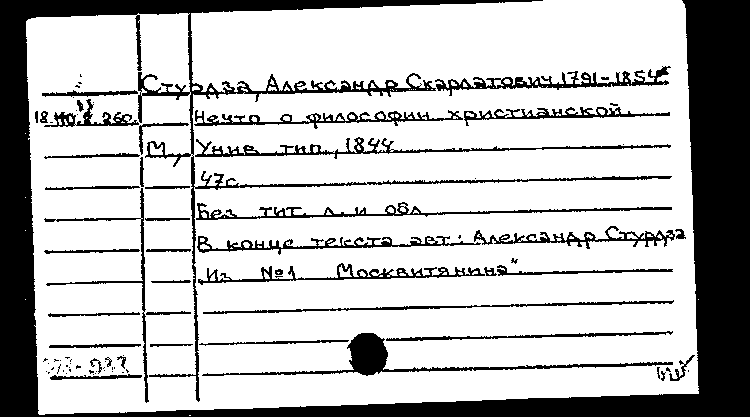 Стурдза, Александр Скарлатович, 1791-1854
Нечто о философии христианской.
М, Унив тип., 1844
47с.
Без тит. л. и обл.
В конце текста авт: Александр Стурдза
„Из №1 Москвитянина“.